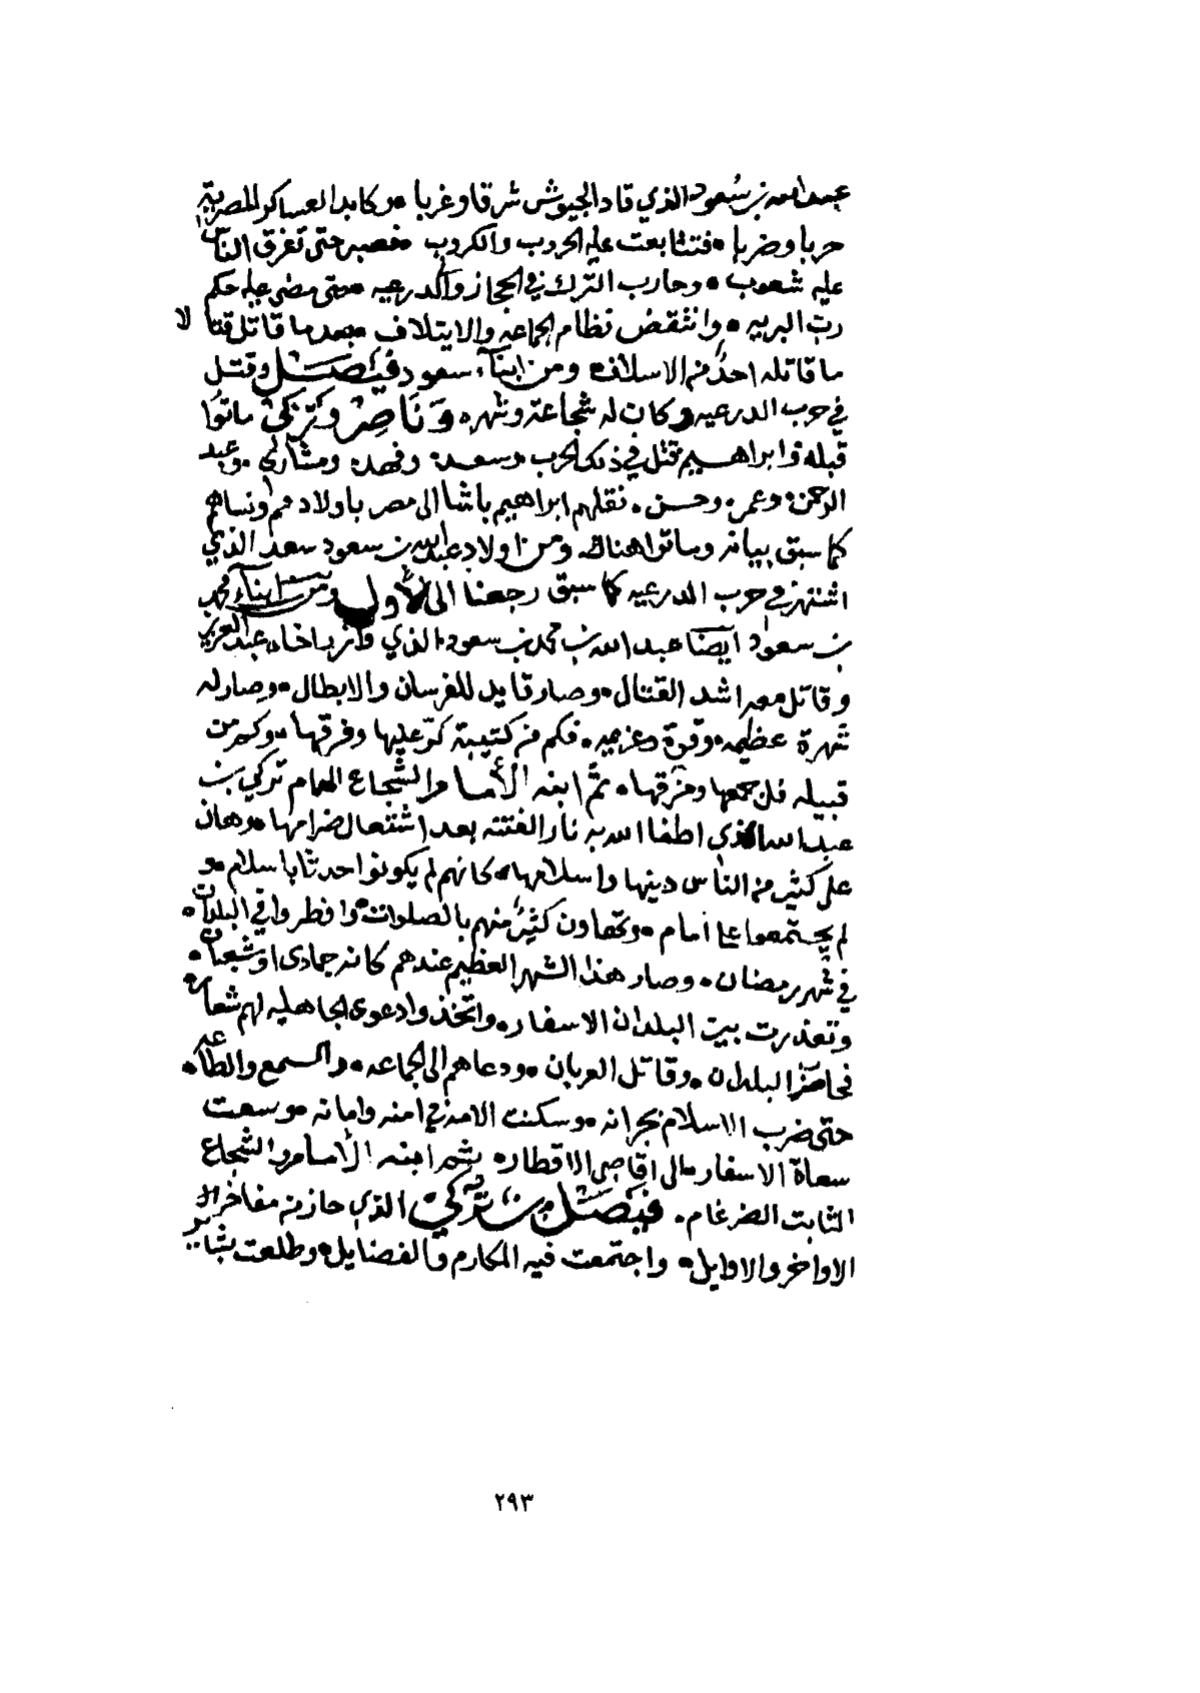 عبد الله بن سُعود الذي قاد الجيوش شرقا وغربا ه وكابد العساكر المصرية
حربا وضربا ه فتتابعت عليه الحروب والكروب ه فصبر حتى تفرق الناس
عليه شعوب ه وحارب الترك في الحجاز والدرعيه ه حتى مضى عليه حكم
ربّ البريه ه وانتقض نظام الجماعه والايتلاف ه بعدما قاتل قتالا
ما قاتله احدٌ من الاسلاف ه ومن ابنآء سعود فيصل وقتل
في حرب الدرعيه وكان له شجاعة وشهره ه وَنَاصِرْ وتركيْ ماتُوا
قبله وابراهيم قتل في ذلك الحرب ه وسعد ه وفهد ه ومشاري ه وعبد
الرحمن ه وعمر ه وحسن ه نقلهم ابراهيم باشا الى مصر باولادهم ونسائهم
كما سبق بيانه وماتوا هناك ه ومن اولاد عبد الله بن سعود سعد الذي
اشتهر في حرب الدرعيه كما سبق رجعنا الى الأول ومن ابنآء محمد
بن سعود ايضا عبد الله بن محمد بن سعود الذي وازر اخاه عبد العزيز
وقاتل معه اشد القتال ه وصار قايد للفرسان والابطال ه وصار له
شهرة عظيمه ه وقوة وعزيمه ه فكم من كتيبة كرّ عليها وفرقها ه وكم من
قبيله فل جمعها ومزقها ه ثمّ ابنه الأمام الشجاع الهمام تركي بن
عبد الله الذي اطفا الله به نار الفتنه بعد اشتعال ضرامها ه وهان
على كثير من الناس دينها واسلامها ه كانهم لم يكونوا حدثا باسلام ه و
لم يجتمعوا على أمام ه وتهاون كثيرٌ منهم بالصلوات ه وافطروا في البلدان ه
في شهر رمضان ه وصار هذا الشهر العظيم عندهم كانه جمادى او شعبان ه
وتعذرت بين البلدان الاسفار ه واتخذوا دعوى الجاهليه لهم شعار ه
فحاصر البلدان ه وقاتل العربان ه ودعاهم الى الجماعه ه والسمع والطاعه ه
حتى ضرب الاسلام بجرانه ه وسكنت الامة في امنه وامانه ه وسعت
سعاة الاسفار ه الى اقاصي الاقطار ه ثم ابنه الأمام الشجاع
الثابت الضرغام ه فيصل بن تركي الذي حاز من مفاخر
الاواخر والاوايل ه واجتمعت فيه المكارم والفضايل ه وطلعت بشاير
٢٩٣